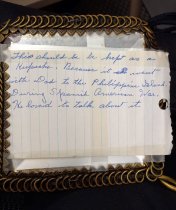 This should be be kept as a
Keepsake. Because it went
with Dad to the Philippine Island.
During Spanish American War.
He loved to talk about it.